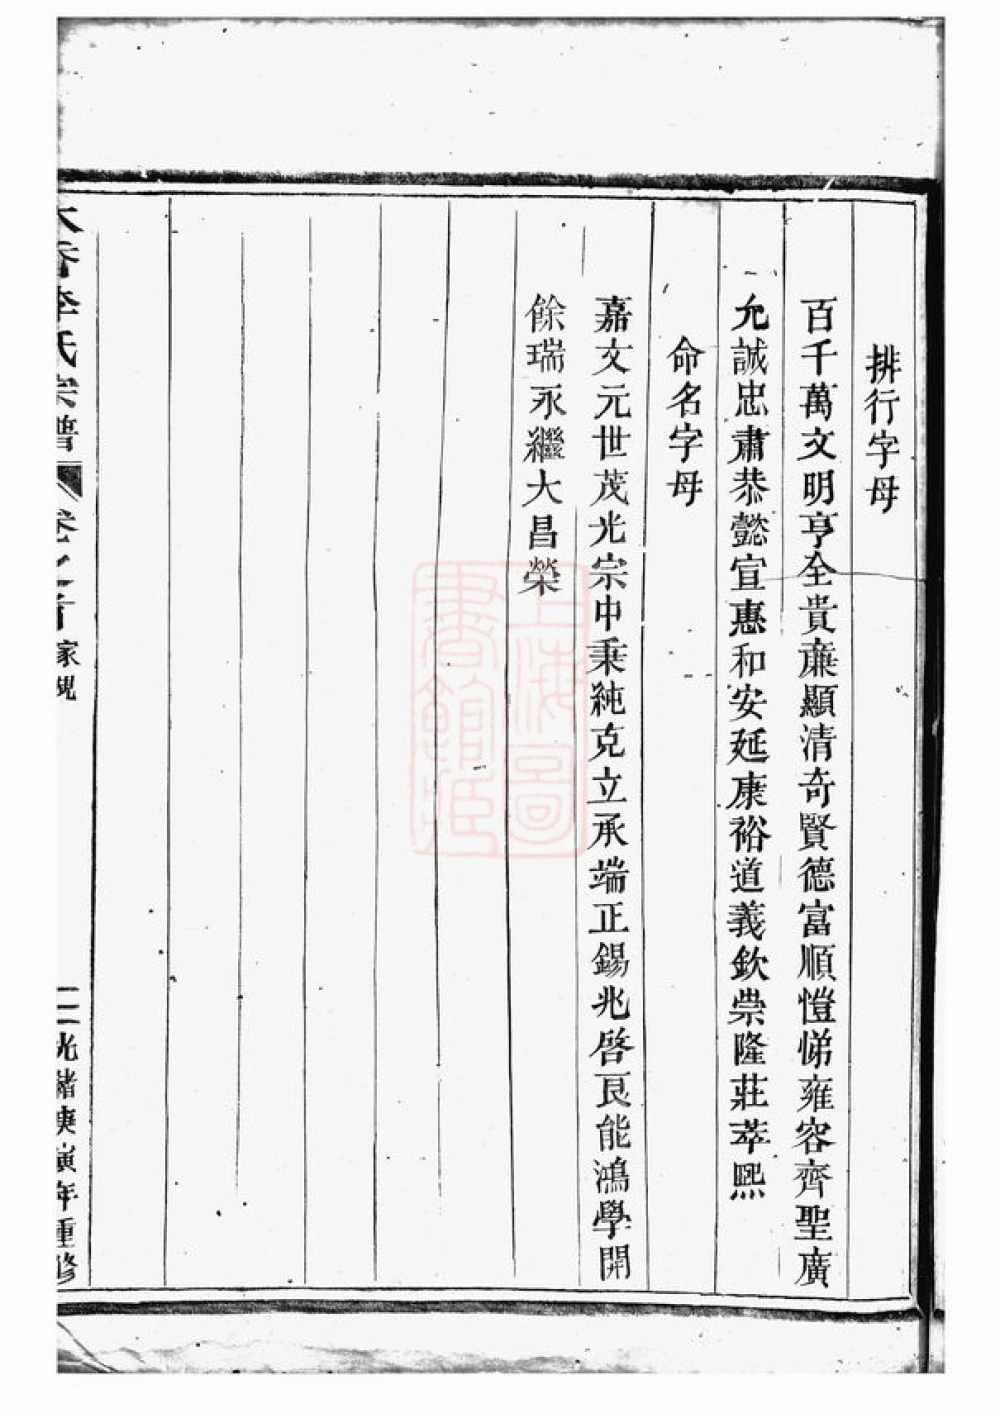 排行字母
百千萬文明亨全貴亷顯清奇賢德富順愷悌雍容齊聖廣
允誠忠肅恭懿宣惠和安延康裕道義欽崇隆莊萃熙
命名字母
嘉文元世茂光宗中秉純克立承端正錫兆啓良能鴻學開
餘瑞永繼大昌榮
李氏宗譜 卷之首 家規 二 光緒庚寅年重修
上海圖
書館藏